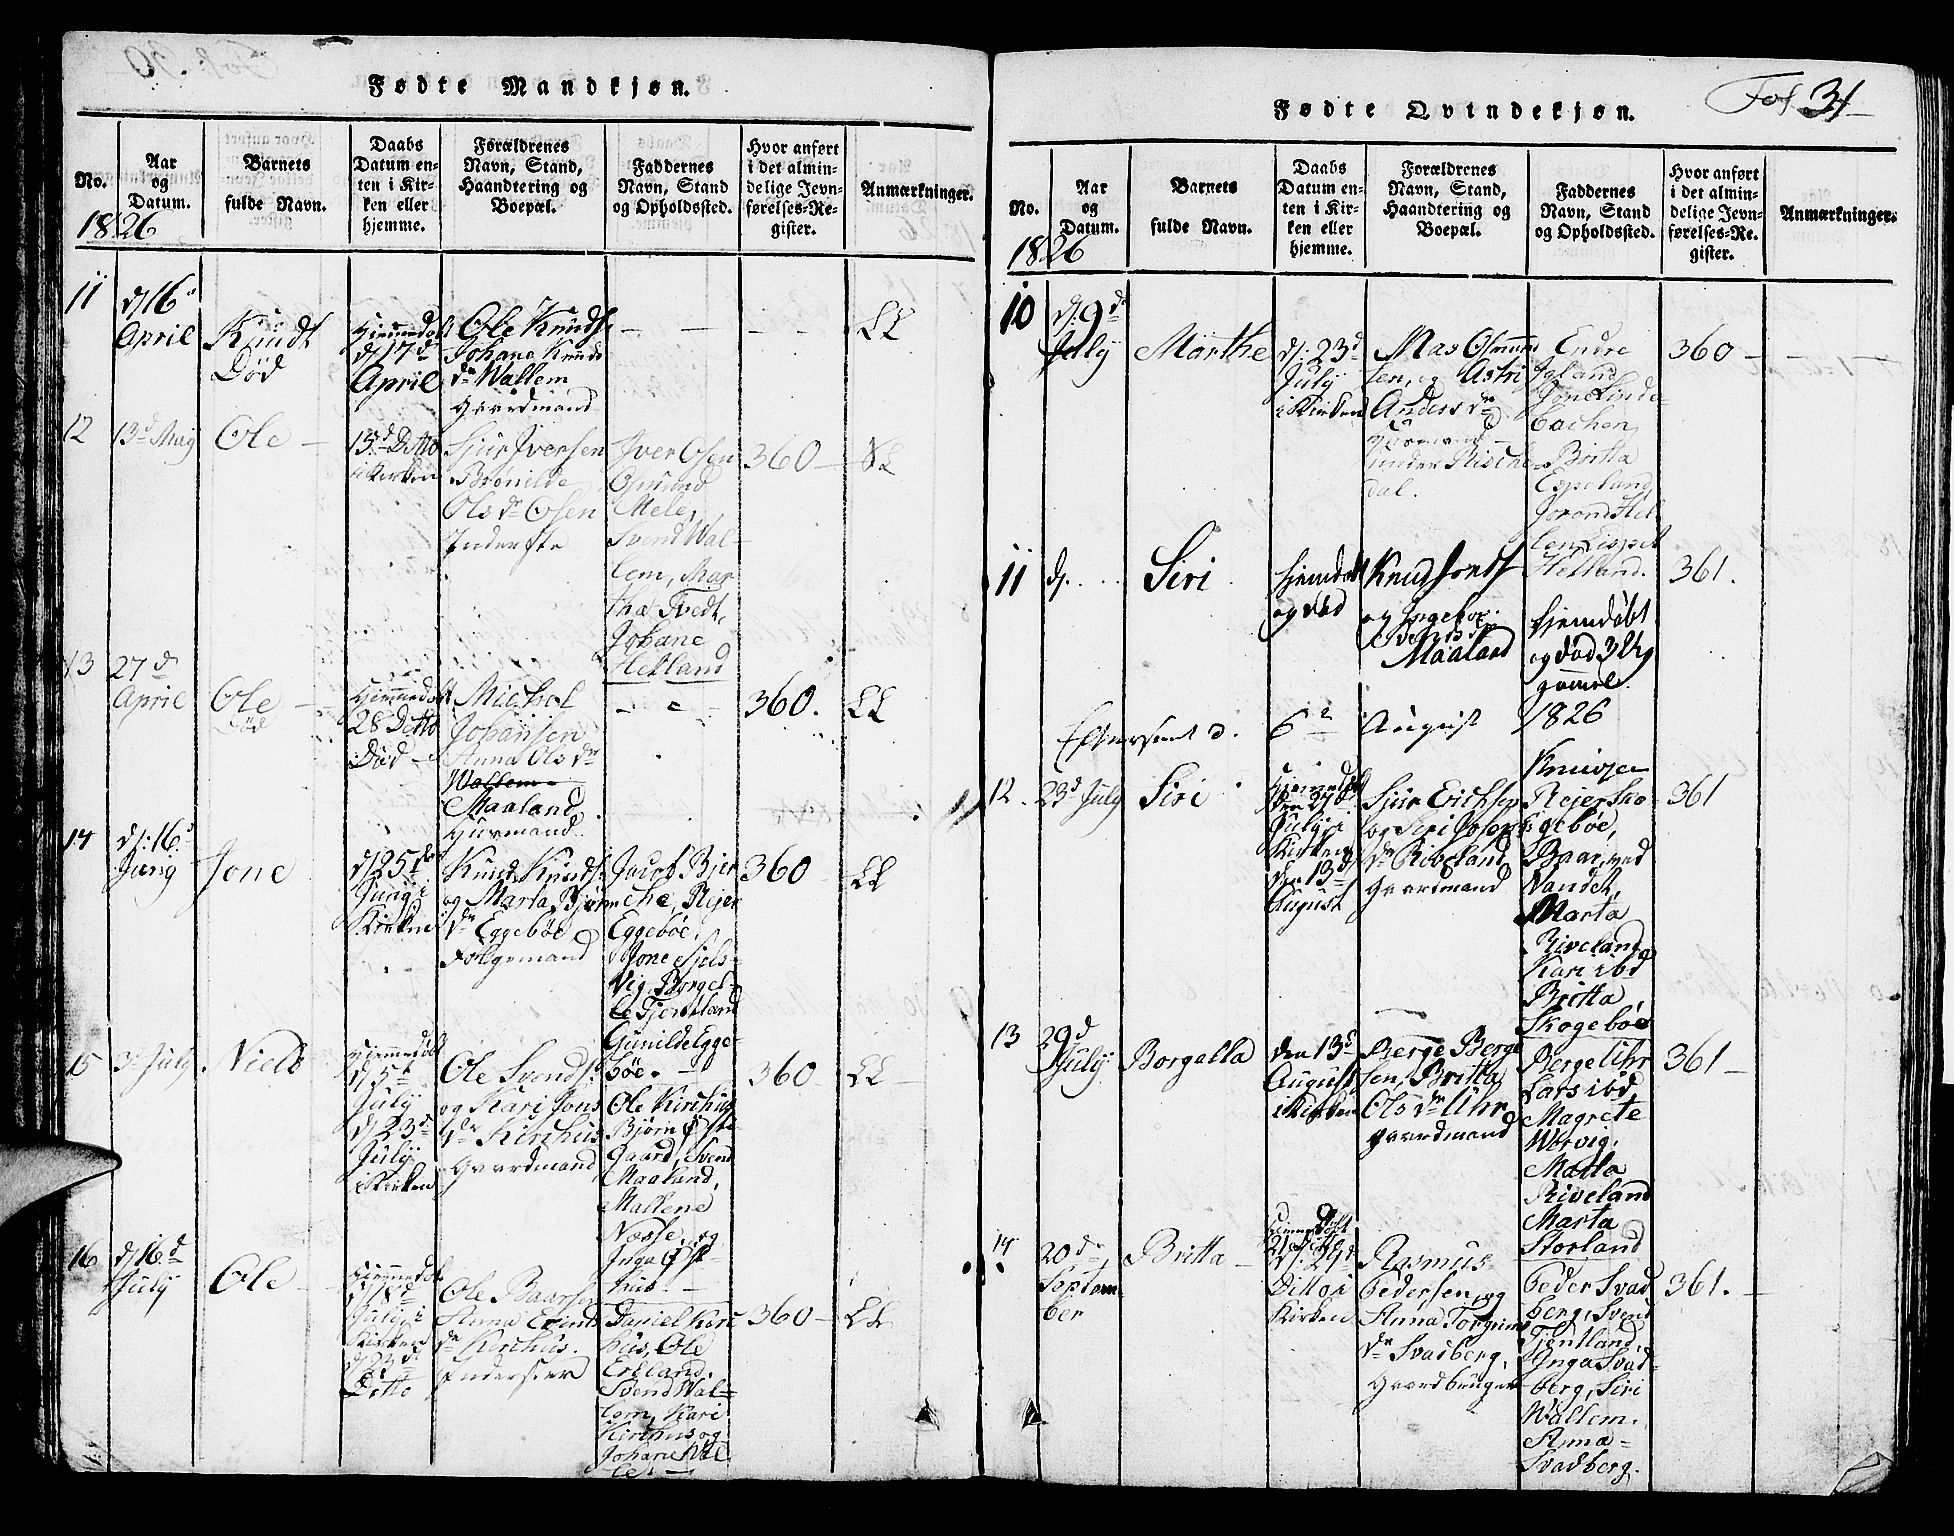 Fødte Mandkjøn.
No.
1826
Aar
og
Datum.
Barnets
fulde Navn.
Daabs
Datum en-
ten i Kir-
ken eller
hjemme.
Forældrenes
Navn, Stand,
Haandtering og
Boepæl.
Faddernes
Navn, Stand
og Opholdssted.
Hvor anført
i det almin-
delige Jevn-
førelses-Re-
gister.
Anmærkninger.
11
d. 16d
April
Knudt
Død
Hjemmedøbt
d 17d
April
Ole Knuds.
Johana Knuds
dr Wallem
Gaardmand
— — — —
12
13d May
Ole
15d Ditto
i Kirken
Sjur Iversen
Brønilde
Ols dr Olsen
Inderste
Iver Osen
Osmund
Mele,
Svend Wal-
lem, Mar
tha Tvedt,
Johane
Hetland
360
13
27d
April
Ole
Død
Hjemmedøbt
28 Ditto
Død
Michel
Johansen
Anna Ols dr
Wallem
Maaland
Huusmand
360.
14
d: 16d
Juny
Jone
d 25de
Juny i
Kirken
Knud Knuds.
og Marta Bjørns
dr Eggebøe
Følgemand
Jacob Bjer
che, Rejer
Eggebøe.
Jone Sjels-
vig, Borgel-
le Tjentland
Gunilde Egge-
bøe.
360
15
3d July
Niels
Hjemmedøbt
d 5t
July
d 23de
July
i Kirken
Ole Svends.
og Kari Jons
dr Kirchus
Gaardmand
Ole Kirchus
Bjørn Øste
Gaard, Svend
Maaland,
Mallene
Nosse, og
Inga Øst
huus.
360
16
d 16.d
July
Ole
Hjemmedøbt
d 18d
July i
Kirken
d 23de
Ditto
Ole Baarsen
Anna Evinds
dr Kirchus.
Inderster
Daniel Kirc
hus, Ole
Erlland.
Svend Wal=
lem, Kari
Kirchus og
Johane Wal
lem
360
Fødte Qvindekjøn.
Fol 31
No.
1826
Aar
og
Datum.
Barnets
fulde Navn.
Daabs
Datum en-
ten i Kir-
ken eller
hjemme.
Forældrenes
Navn, Stand,
Haandtering og
Boepæl.
Faddernes
Navn, Stand
og Opholdssted.
Hvor anført
i det almin-
delige Jevn-
førelses-Re-
gister.
Anmærkninger.
10
d: 9de
July
Marthe
d: 23d
July
i Kirken
Mas Osmun
sen, og Astri
Anders dr
Huusmand
under Rische
dal.
Endre
Igland,
Jone Linde-
bachen,
Britta
Espeland,
Jorond Hel
len, Lispet
Hetland.
360
11
d. . . .
Siri
Hjemdøbt
og død
Knud Jonss
og Ingebor
Maaland
hjemdøbt
og død 3 Ug
gamel.
361.
Efterseet d. 6te August 1826
12.
23d July
Siri
Hjemmedøbt
den 27d
July i
Kirken
den 13d
August
Sjur Erichsen
og Siri Josephs
dr Riveland
Gaardmand
Rejer Sko-
gebøe,
Baar ved
Vandet,
Marta
Riveland,
Kari ibd
Britta
Skogebøe
361
13
29d
July
Borgalla
den 13d
August
i Kirken
Berge Berge
sen, Britta
Ols dr Uhr
Gaardmand
Berge Uhr
Lars ibd,
Magrete
Worvig.
Marta
Riveland
Marta
Storland
361
14
20de
Septem
ber
Britta
Hjemmedøbt
Ditto i
Kirken
Rasmus
Pedersen, og
Anna Torgrims
dr Svadberg,
Gaardbruger
Peder Svad
berg, Svend
Tjentland,
Inga Svad-
berg, Siri
Wallem.
Anna
Svadberg.
361.